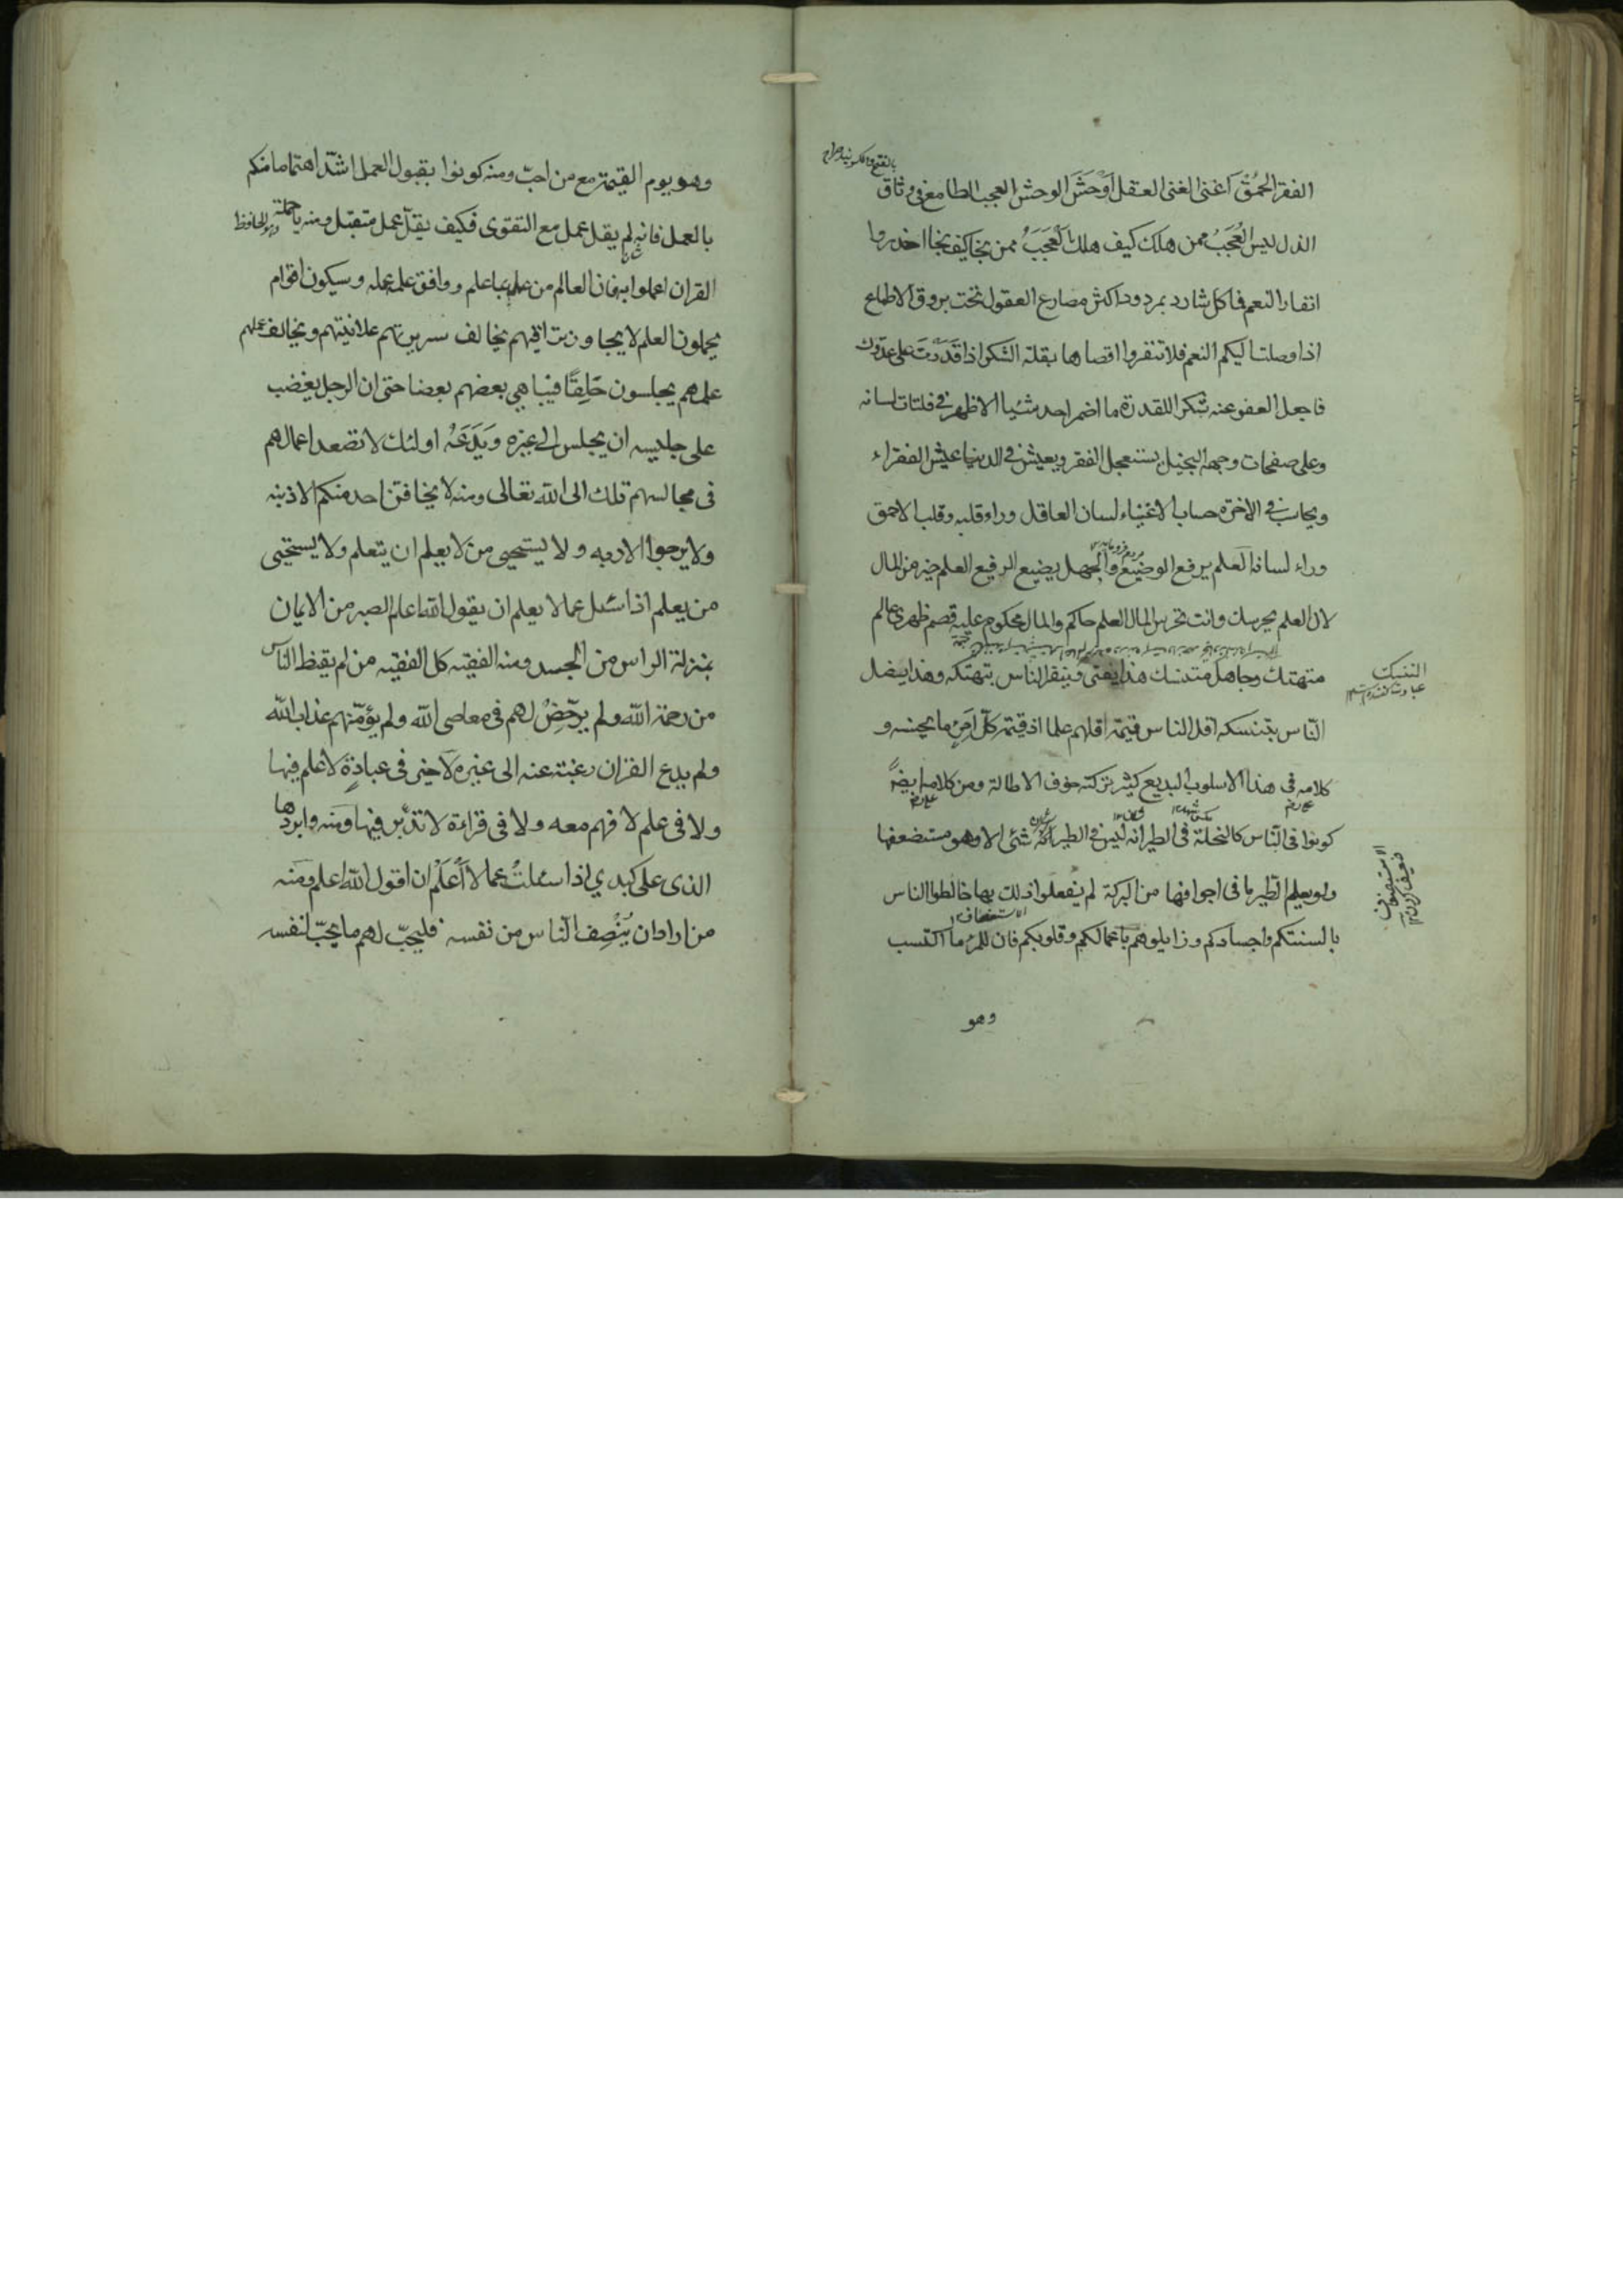 الفقر الحمق اغنى الغنى العقل اوحش الوحش العجب الطامع فى وثاق
الذل ليس العجب ممن هلك كيف هلك العجب ممن نجا كيف نجا احذروا
انفار النعم فما كل شارد بمردود اكثر مصارع العقول تحت بروق الاطماع
اذا وصلت اليكم النعم فلا تنفروا اقصاها بقلة الشكر اذا قدرت على عدوك
فاجعل العفو عنه شكرا للقدرة ما اضمر احد شيا الا ظهر فى فلتات لسانه
وعلى صفحات وجهه البخيل يستعجل الفقر ويعيش فى الدنيا عيش الفقراء
ويحاسب فى الاخرة حساب الاغنياء لسان العاقل وراء قلبه وقلب الاحمق
وراء لسانه العلم يرفع الوضيع والجهل يضيع الرفيع العلم خير من المال
لان العلم يحرسك وانت تحرس المال العلم حاكم والمال محكوم عليه قصم ظهرى عالم
متهتك وجاهل متنسك هذا يفتى وينفر الناس بتهتكه وهذا يضل
التنسك
الناس بتنسكه اقل الناس قيمة اقلهم علما اذ قيمة كل امرئ ما يحسنه و
كلامه فى هذا الاسلوب البديع كثير تركته خوف الاطالة ومن كلامه ايضا
كونوا فى الناس كالنحلة فى الطير انه ليس فى الطير شئ الا وهو مستضعفها
ولو يعلم الطير ما فى اجوافها من البركة لم يفعلوا ذلك بها خالطوا الناس
الاستضعاف
بالسنتكم واجسادكم وزايلوهم باعمالكم وقلوبكم فان للمرء ما اكتسب
وهو
وهو يوم القيمة مع من احب ومنه كونوا بقبول العمل اشد اهتماما منكم
بالعمل فانه لم يقل عمل مع التقوى فكيف يقل عمل متقبل ومنه يا حملة
القران اعملوا به فان العالم من عمل بما علم ووافق علمه عمله وسيكون اقوام
يحملون العلم لا يجاوز تراقيهم يخالف سريرتهم علانيتهم ويخالف عملهم
علمهم يجلسون حلقا فيباهى بعضهم بعضا حتى ان الرجل يغضب
على جليسه ان يجلس الى غيره ويدعه اولئك لا تصعد اعمالهم
فى مجالسهم تلك الى الله تعالى ومنه لا يخافن احد منكم الا ذنبه
ولا يرجوا الا ربه ولا يستحيى من لا يعلم ان يتعلم ولا يستحيى
من يعلم اذا سئل عما لا يعلم ان يقول الله اعلم الصبر من الايمان
بمنزلة الراس من الجسد ومنه الفقيه كل الفقيه من لم يقنط الناس
من رحمة الله ولم يرخص لهم فى معاصى الله ولم يؤمنهم عذاب الله
ولم يدع القران رغبة عنه الى غيره لا خير فى عبادة لا علم فيها
ولا فى علم لا فهم معه ولا فى قراءة لا تدبر فيها ومنه وابردها
الذى على كبدى اذا سئلت عما لا اعلم ان اقول الله اعلم ومنه
من اراد ان ينصف الناس من نفسه فليحب لهم ما يحب لنفسه